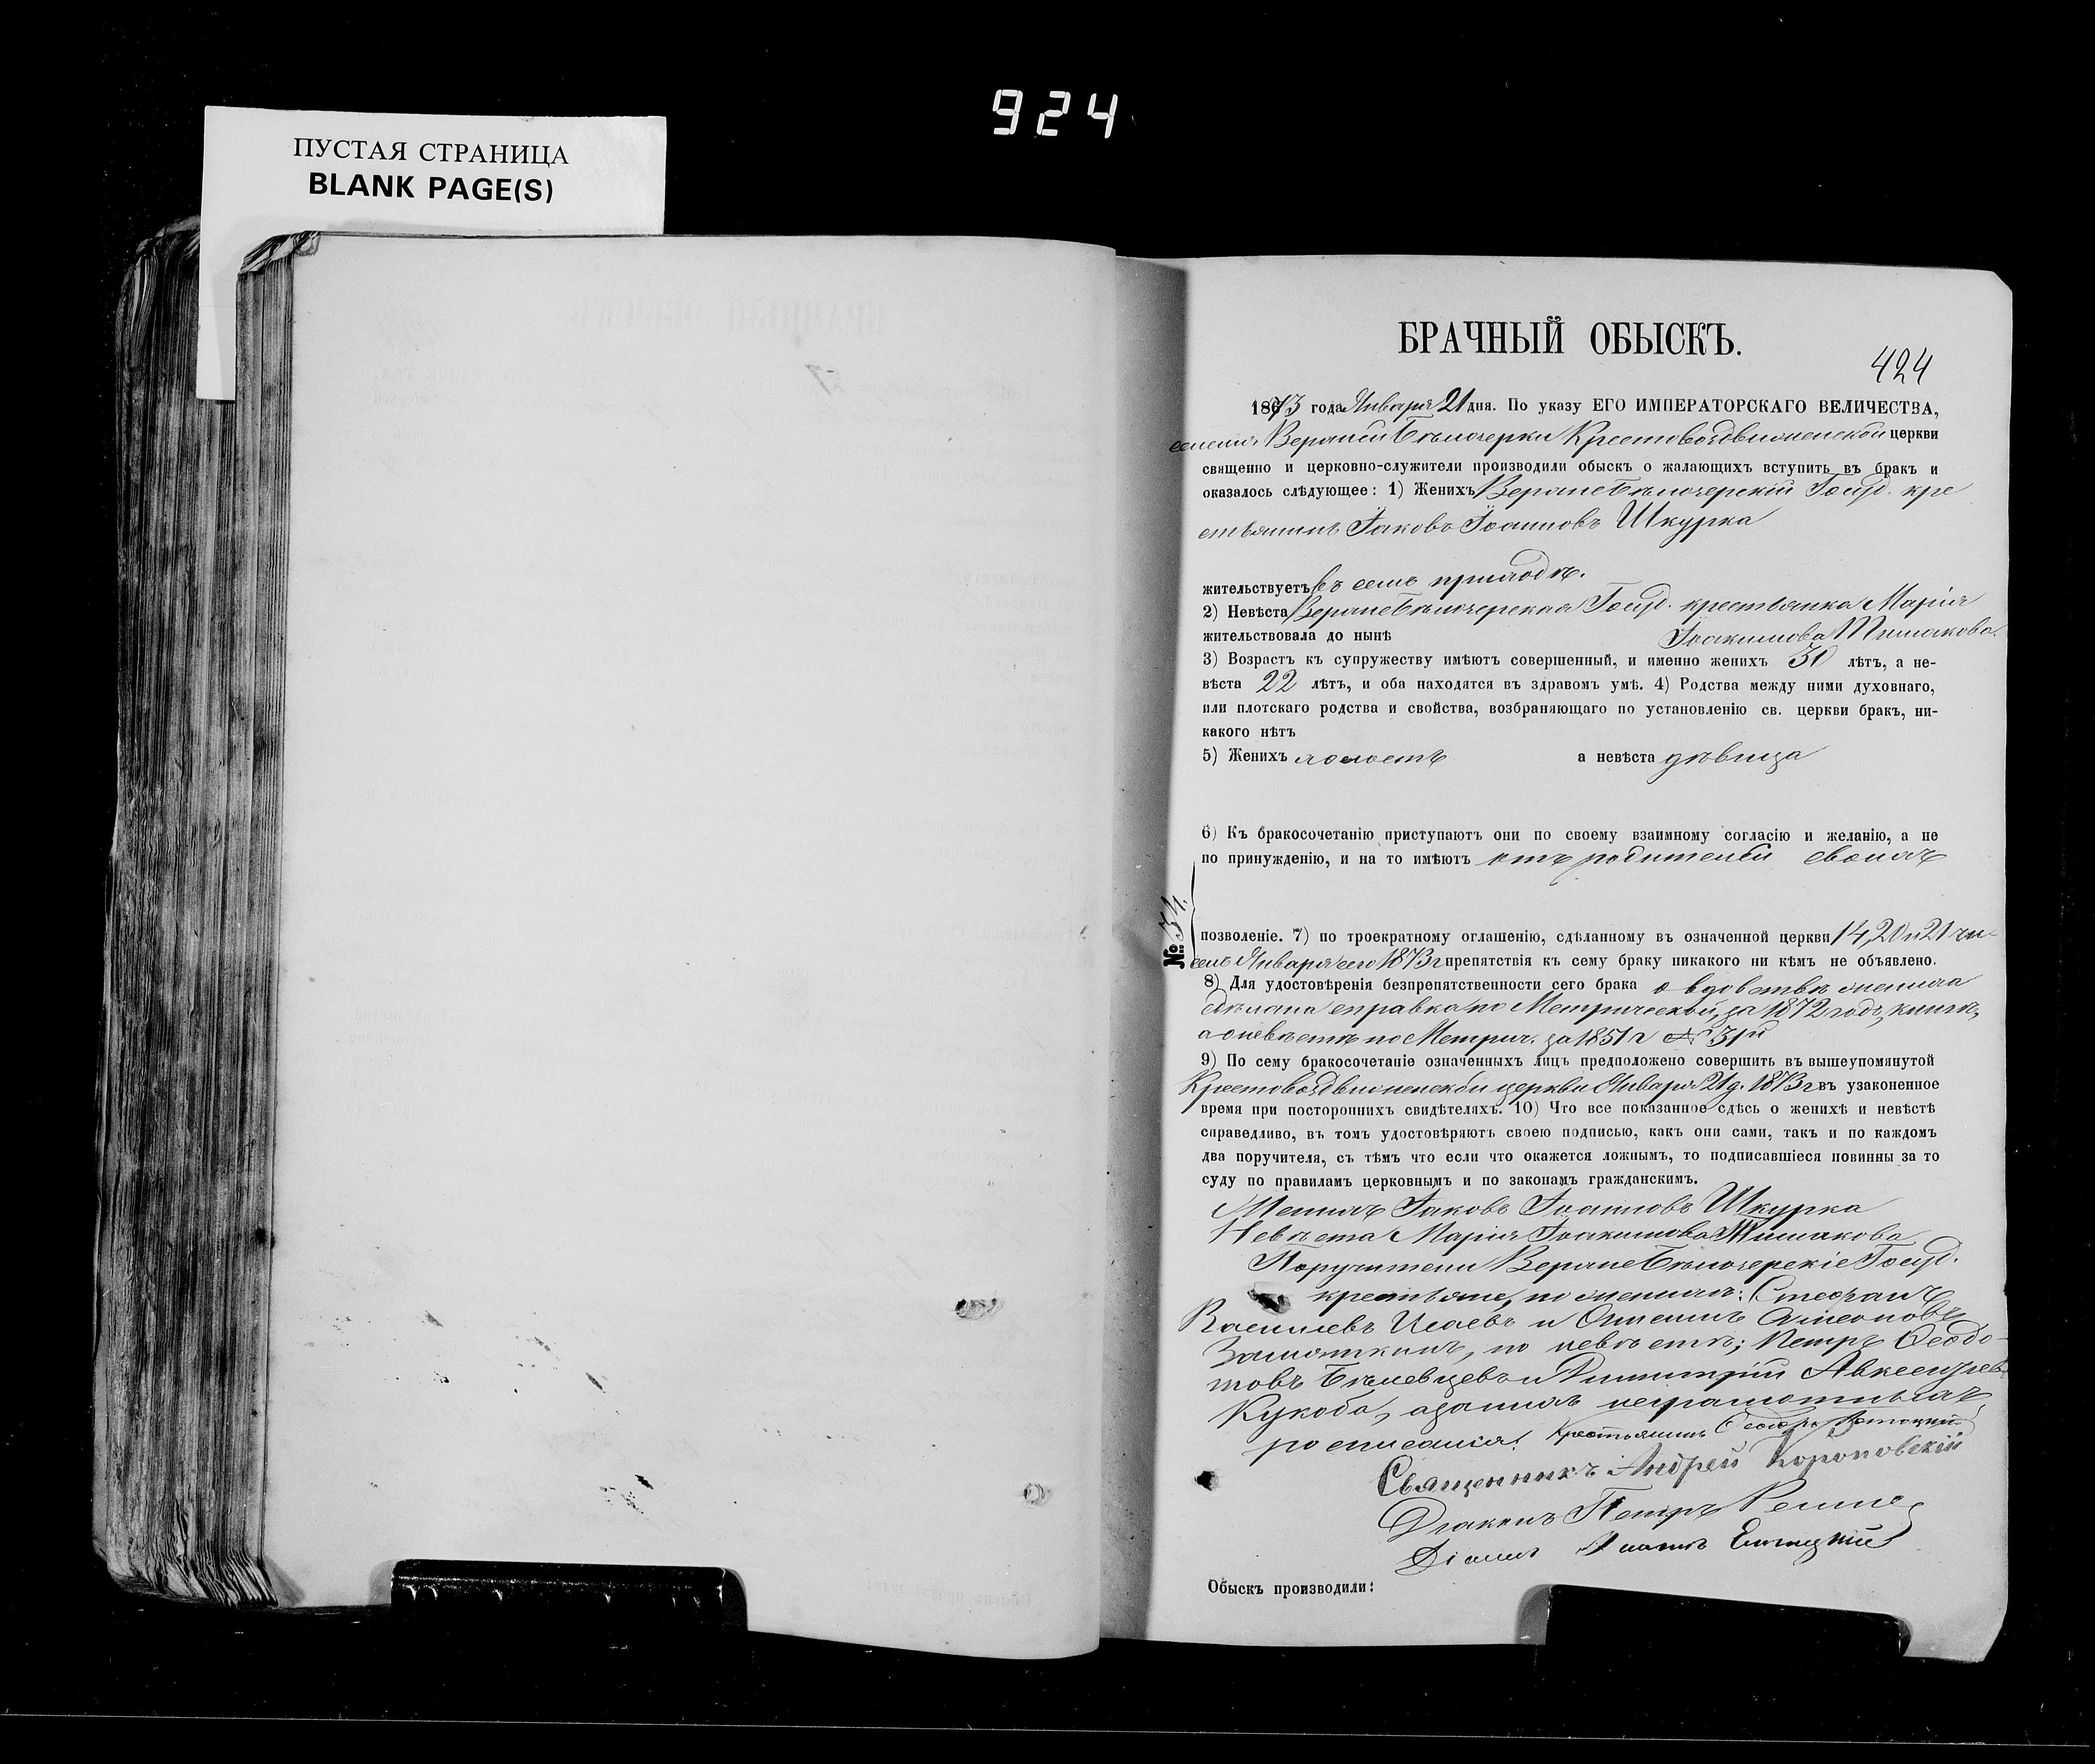 924
ПУСТАЯ СТРАНИЦА
BLANK PAGE(S)
БРАЧНЫЙ ОБЫСКЪ.
424
1873 года Января 21 дня. По указу ЕГО ИМПЕРАТОРСКАГО ВЕЛИЧЕСТВА,
селенія Верхней Бѣлозерки Крестовоздвиженской церкви
священно и церковно-служители производили обыскъ о жалающихъ вступить въ бракъ и
оказалось слѣдующее: 1) Женихъ Верхнебѣлозерскій Госуд. кре
стьянинъ Іаковъ Іоанновъ Шкурка
жительствуетъ въ семъ приходѣ.
2) Невѣста Верхнебѣлозерская Госуд. крестьянка Марія
жительствовала до нынѣ Іоакимова Тишакова.
3) Возрастъ къ супружеству имѣютъ совершенный, и именно женихъ 30 лѣтъ, а не-
вѣста 22 лѣтъ, и оба находятся въ здравомъ умѣ. 4) Родства между ними духовнаго,
или плотскаго родства и свойства, возбраняющаго по установленію св. церкви бракъ, ни-
какого нѣтъ
5) Женихъ холостъ а невѣста дѣвица
6) Къ бракосочетанію приступаютъ они по своему взаимному согласію и желанію, а не
по принужденію, и на то имѣютъ отъ родителей своихъ
№
позволеніе. 7) по троекратному оглашенію, сдѣланному въ означенной церкви 14, 20 и 21 чи-
селъ Января сего 1873 г препятствія къ сему браку никакого ни кѣмъ не объявлено.
8) Для удостовѣренія безпрепятственности сего брака о вдовствѣ жениха
сдѣлана справка по Метрической, за 1872 годъ, книгѣ,
а о невѣстѣ по Метрич. за 1851 г № 31й
9) По сему бракосочетаніе означенныхъ лицъ предположено совершить въ вышеупомянутой
Крестовоздвиженской церкви Января 21 д. 1873 г въ узаконенное
время при постороннихъ свидѣтеляхъ. 10) Что все показанное сдѣсь о женихѣ и невѣстѣ
справедливо, въ томъ удостовѣряютъ своею подписью, какъ они сами, такъ и по каждомъ
два поручителя, съ тѣмъ что если что окажется ложнымъ, то подписавшіеся повинны за то
суду по правиламъ церковнымъ и по законамъ гражданскимъ.
Женихъ Іаковъ Іоанновъ Шкурка
Невѣста Марія Іоакимова Тишакова
Поручители Верхнебѣлозерскіе Госуд.
крестьяне, по женихѣ: Стефанъ
Васильевъ Исаевъ и Симеоновъ
по невѣстѣ; Петръ Феодо-
товъ Бѣлевцевъ и Димитрій Авксентьев
Кукоба, а за нихъ неграмотныхъ
росписался: Крестьянинъ Феодоръ
Священникъ Андрей Короповскій
Діаконъ Петръ
Обыскъ производили: